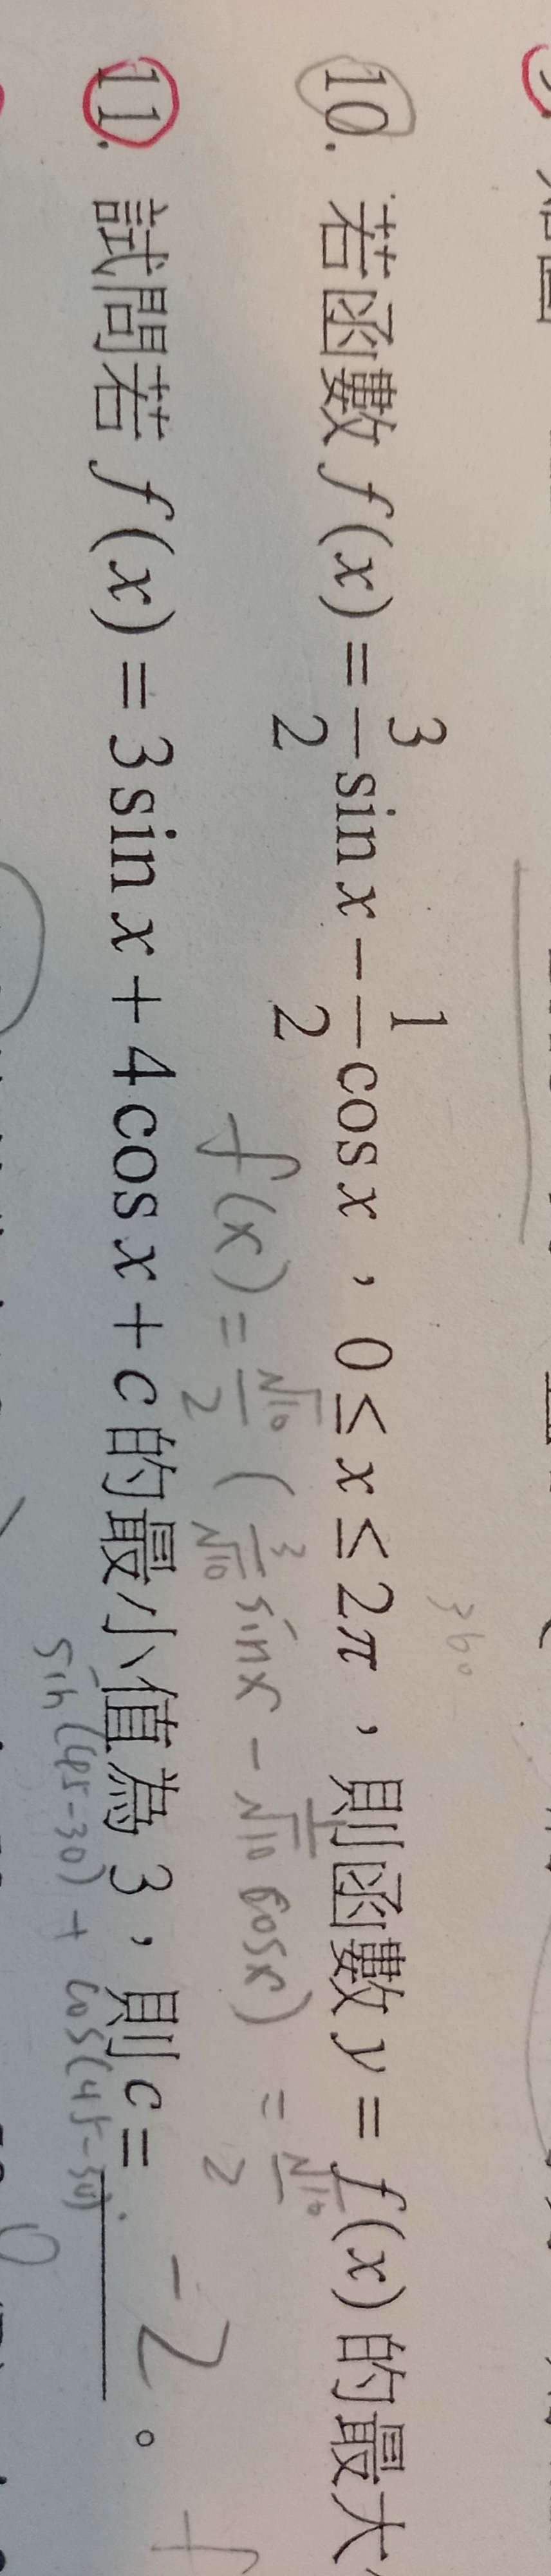 10. 若函數 f(x) = 3/2 sin x − 1/2 cos x , 0 ≤ x ≤ 2π , 則函數 y = f(x) 的最大
360
f(x) = √10/2 ( 3/√10 sinx − 1/√10 cosx) = √10/2
11. 試問若 f(x) = 3 sin x + 4 cos x + c 的最小值為 3 , 則 c = -2 。
sin(45-30) + cos(45-30)